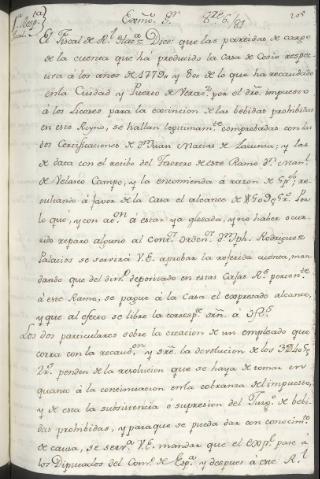 Exmô. Sôr.
208
El Fiscal de Rl. Haza. Dice: que las partidas de cargo
de la cuenta que há producido la Casa de Cosio respec
tiva à los años de 1779, y 80 de lo que ha recaudado
en la Ciudad y Puerto de Veracz. por el dro. impuesto
à los Licores para la extincion de las bebidas prohibidas
en este Reyno, se hallan legitimamte. comprobadas con las
dos Certificaciones de Dn. Juan Matias de Lacunza; y las
de data con el recibo del Tesorero de este Ramo Dn. Manl.
de Velasco Campo, y la encomienda à razon de
sultando à favor de la Casa el alcance de Por
lo que, y con aon. à estar ya glosada, y no haver ocur
rido reparo alguno al Contr. Ordenr. Dn. Jph. Rodriguez
Palacios se servirá V.E. aprobar la referida cuenta, man
dando que del dinô. depositado en estas Cajas Rs. pertente.
à este Ramo, se pague à la Casa el expresado alcance,
y que al efecto se libre la corresp.
Los dos particulares sobre la creacion de un empleado que
corra con la recaudon. y sre. la devolucion de los
penden de la resolucion que se haya de tomar en
quanto à la continuacion en la cobranza del impuesto,
y de esta la subsistencia ó supresion del Juzgo. de bebi-
das prohibidas, y para que se pueda dar con conocimto.
de causa, se serva. V.E. mandar que el Expte. pase à
los Diputados del Como. de Espa. y despues à este Rl.